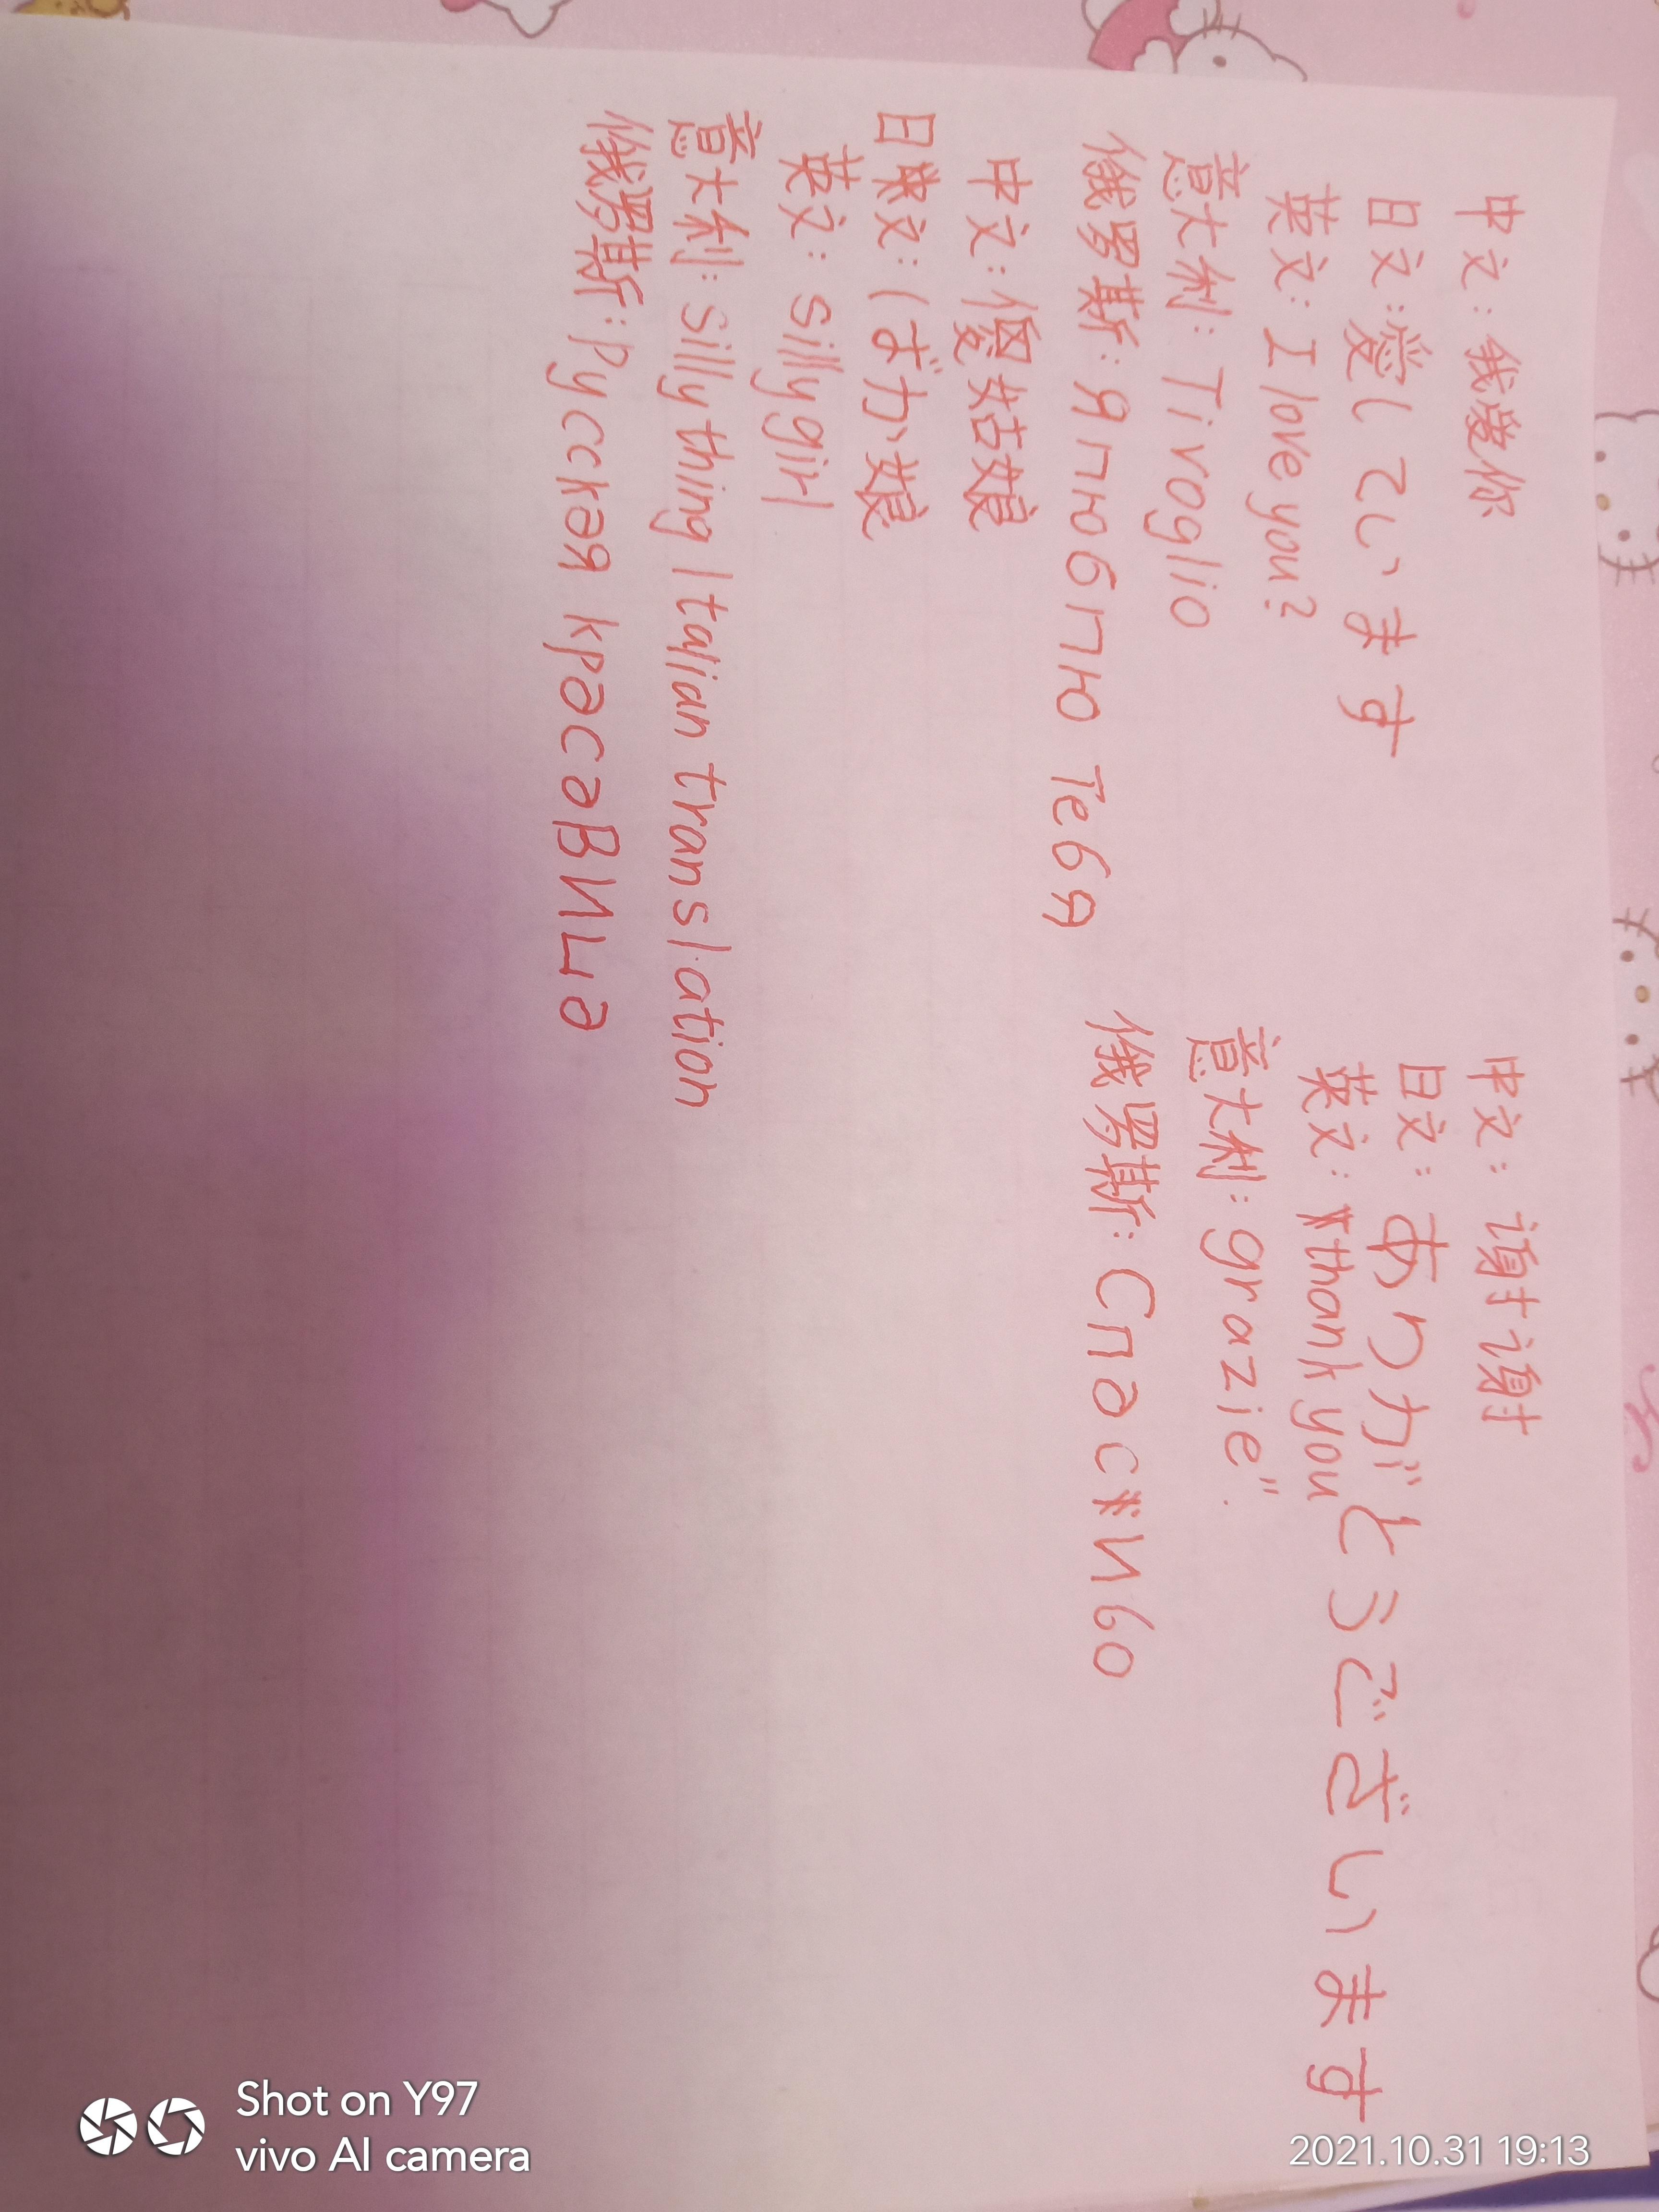 中文：我爱你
日文：愛しています
英文：I love you?
意大利：Ti voglio
俄罗斯：Я люблю Тебя
中文：傻姑娘
日文：ばか娘
英文：sillygirl
意大利：silly thing Italian translation
俄罗斯：Русская красавица
中文：谢谢
日文：ありがとうございます
英文：thank you
意大利：grazie".
俄罗斯：Спасибо
Shot on Y97
vivo AI camera
2021.10.31 19:13